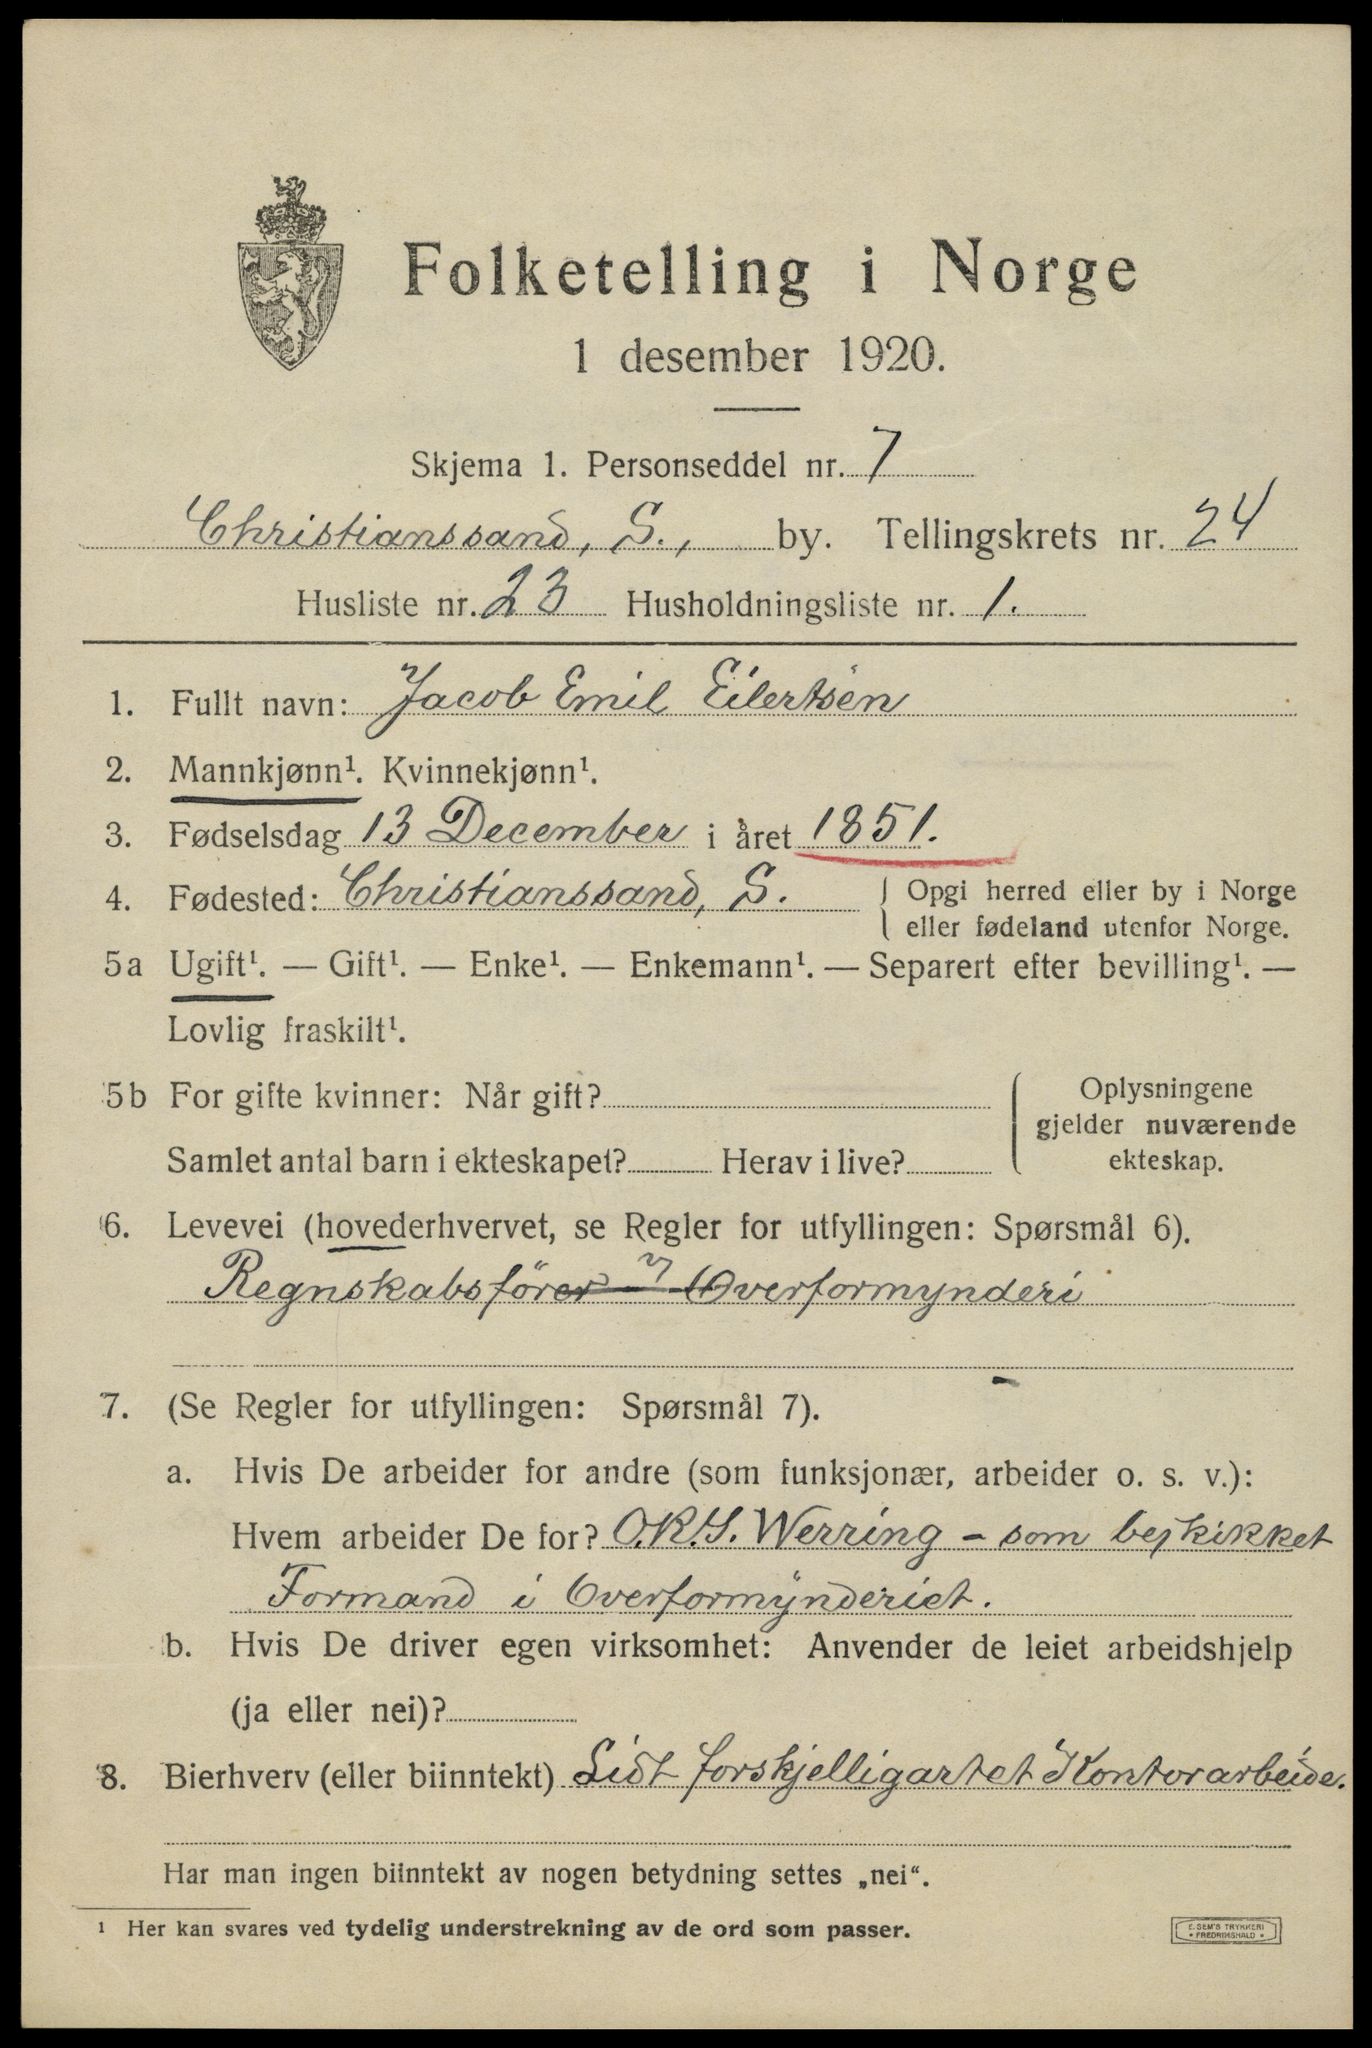 Folketelling i Norge
1 desember 1920.
Skjema 1. Personseddel nr. 7
Christianssand, S., by. Tellingskrets nr. 24
Husliste nr. 23 Husholdningsliste nr. 1.
1. Fullt navn: Jacob Emil Eilertsen
2. Mannkjønn¹. Kvinnekjønn¹.
3. Fødselsdag 13 December i året 1851.
4. Fødested: Christianssand, S. { Opgi herred eller by i Norge
eller fødeland utenfor Norge.
5a Ugift¹. — Gift¹. — Enke¹. — Enkemann¹. — Separert efter bevilling¹. —
Lovlig fraskilt¹.
5b For gifte kvinner: Når gift?
Samlet antal barn i ekteskapet? Herav i live?
Oplysningene
gjelder nuværende
ekteskap.
6. Levevei (hovederhvervet, se Regler for utfyllingen: Spørsmål 6).
Regnskabsfører Overformynderi
7. (Se Regler for utfyllingen: Spørsmål 7).
a. Hvis De arbeider for andre (som funksjonær, arbeider o. s. v.):
Hvem arbeider De for? O.K.S. Werring - som beskikket
Formand i Overformynderiet.
b. Hvis De driver egen virksomhet: Anvender de leiet arbeidshjelp
(ja eller nei)?
8. Bierhverv (eller biinntekt) Lidt forskjelligartet Kontorarbeide.
Har man ingen biinntekt av nogen betydning settes „nei“.
¹ Her kan svares ved tydelig understrekning av de ord som passer.
E. SEM'S TRYKKERI
• FREDRIKSHALD •